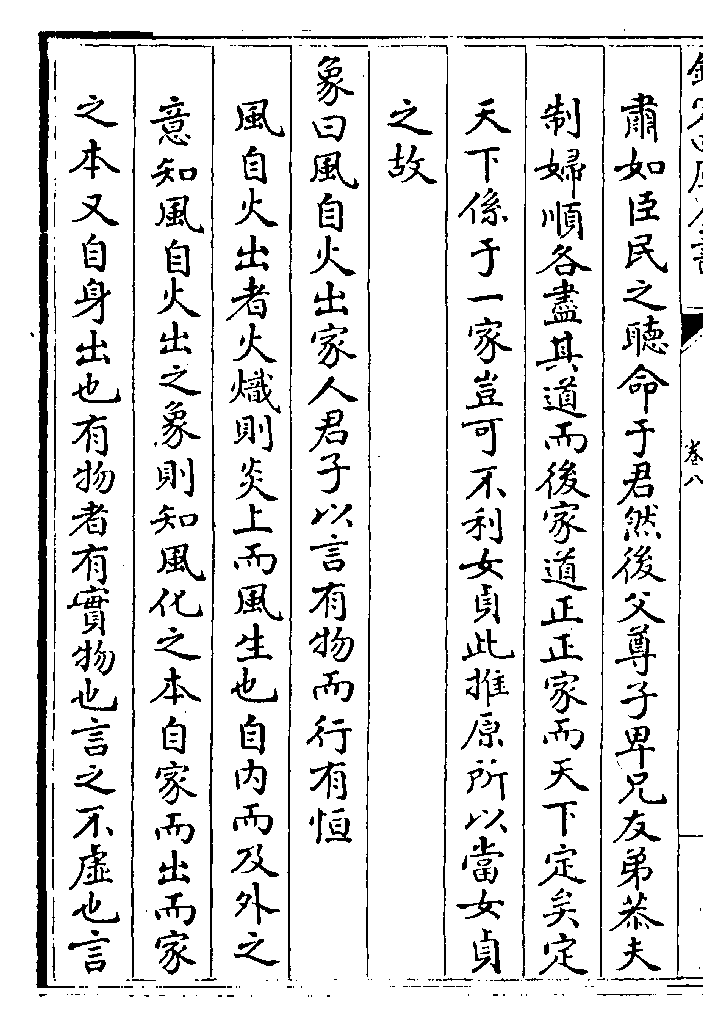 欽定四庫全書
卷八
肅如臣民之聽命于君然後父尊子卑兄友弟恭夫
制婦順各盡其道而後家道正正家而天下定矣定
天下係于一家豈可不利女貞此推原所以當女貞
之故
象曰風自火出家人君子以言有物而行有恒
風自火出者火熾則炎上而風生也自内而及外之
意知風自火出之象則知風化之本自家而出而家
之本又自身出也有物者有實物也言之不虛也言